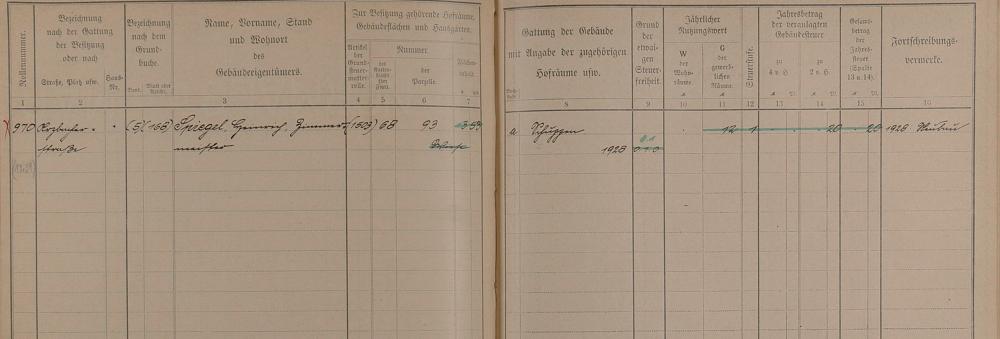 Rollennummer.
Bezeichnung
nach der Gattung
der Besitzung
oder nach
Straße, Platz usw.
Haus-
Nr.
Bezeichnung
nach dem
Grund-
buche.
Band.
Blatt oder
Artikel.
Name, Vorname, Stand
und Wohnort
des
Gebäudeeigentümers.
Zur Besitzung gehörende Hofräume,
Gebäudeflächen und Hausgärten.
Artikel
der
Grund-
steuer-
mutter-
rolle.
Nummer
des
Karten-
blatts
der
Parzelle.
1 2 3 4 5 6 7
970
straße
(5)
(168)
Spiegel, Heinrich, Zimmer-
meister
(1503)
68
93
Gattung der Gebäude
mit Angabe der zugehörigen
Hofräume usw.
Grund
der
etwai-
gen
Steuer-
freiheit.
Jährlicher
Nutzungswert
W
der
Wohn-
räume.
G
der
gewerb-
lichen
Räume.
Steuerstufe.
Jahresbetrag
der veranlagten
Gebäudesteuer
zu
4 v. H.
zu
2 v. H.
Gesamt-
betrag
der
Jahres-
steuer
(Spalte
13 u. 14).
Fortschreibungs-
vermerke.
8 9 10 11 12 13 14 15 16
a
Schuppen
12
1
20
20
1928 Neubau
1928